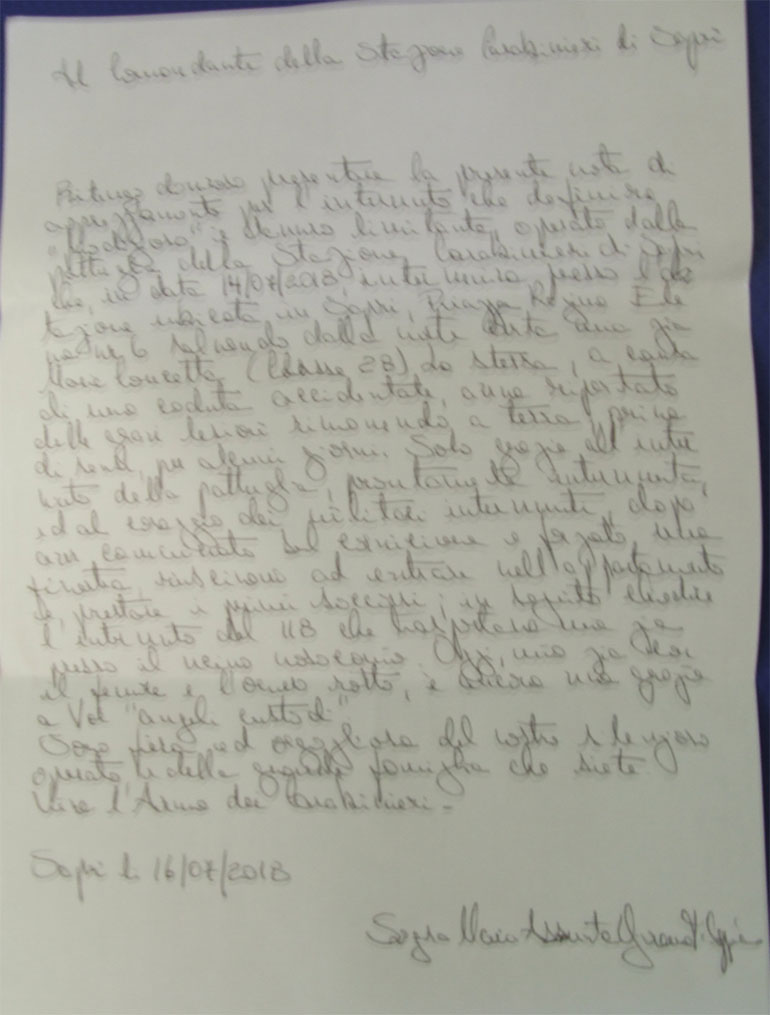 Al Comandante della Stazione Carabinieri di Sapri
Ritengo doveroso presentare la presente nota di
apprezzamento per l'intervento che definire
è limitante, operato dalla
pattuglia della Stazione Carabinieri di Sapri
che, in data 14/07/2018, intervenuta presso l'abi
tazione ubicata in Sapri, Piazza Regina Ele
na nr 6 salvando dalla morte certa una zia
Maria Concetta, (Classe 28). La stessa, a causa
di una caduta accidentale, aveva riportato
delle gravi lesioni rimanendo a terra, priva
di sensi, per alcuni giorni. Solo grazie all'inter
vento della pattuglia, prontamente intervenuta,
ed al coraggio dei militari intervenuti, dopo
aver comunicato e forzato una
finestra, riuscirono ad entrare nell'appartamento
e, prestare i primi soccorsi; in seguito chiedere
l'intervento del 118 che mia zia
presso il vicino nosocomio. Oggi, mia zia
il femore e l'omero rotto, è ancora viva grazie
a Voi "angeli custodi"
Sono fiera ed orgogliosa del vostro
operato e della grande famiglia che siete.
Viva l'Arma dei Carabinieri.
Sapri li 16/07/2018
Maria Assunta